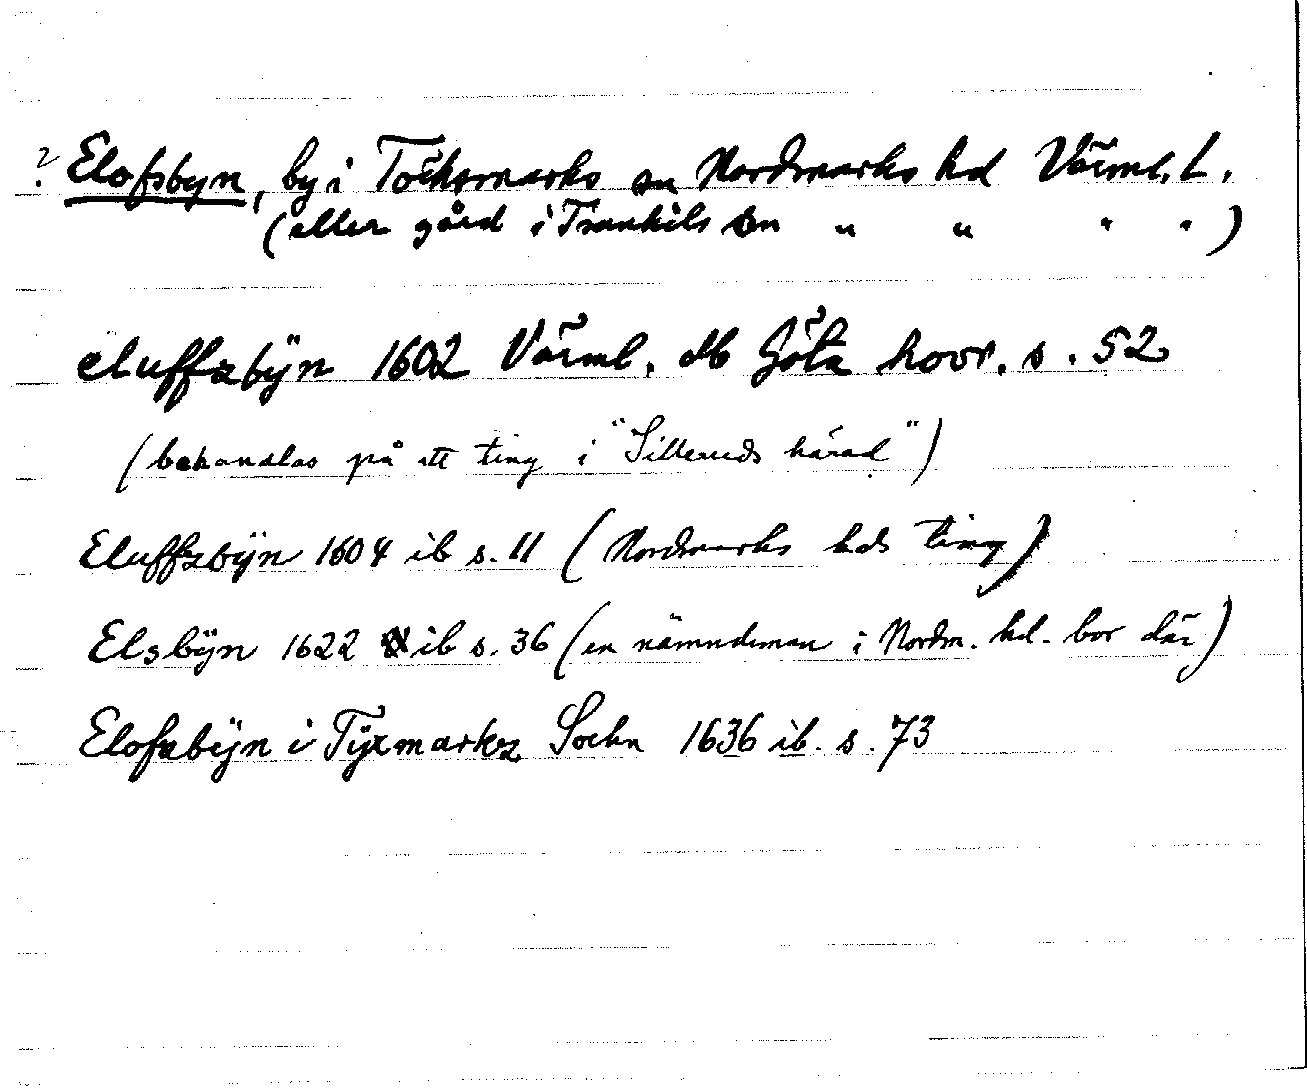 ? Elofsbyn, by i Töcksmarks sn Nordmarks hd Värml. L.
(eller gård i Trankils sn " " " ")
eluffzbÿn 1602 Värml. db Göta hovr. s. 52
(behandlas på ett ting i "Silleruds härad")
Eluffzbÿn 1604 ib s. 11 (Nordmarks hds ting)
Elsbÿn 1622 ib s. 36 (en nämndeman i Nordm. hd. bor där)
Elofzbÿn i Tÿxmarkz Sochn 1636 ib. s. 73